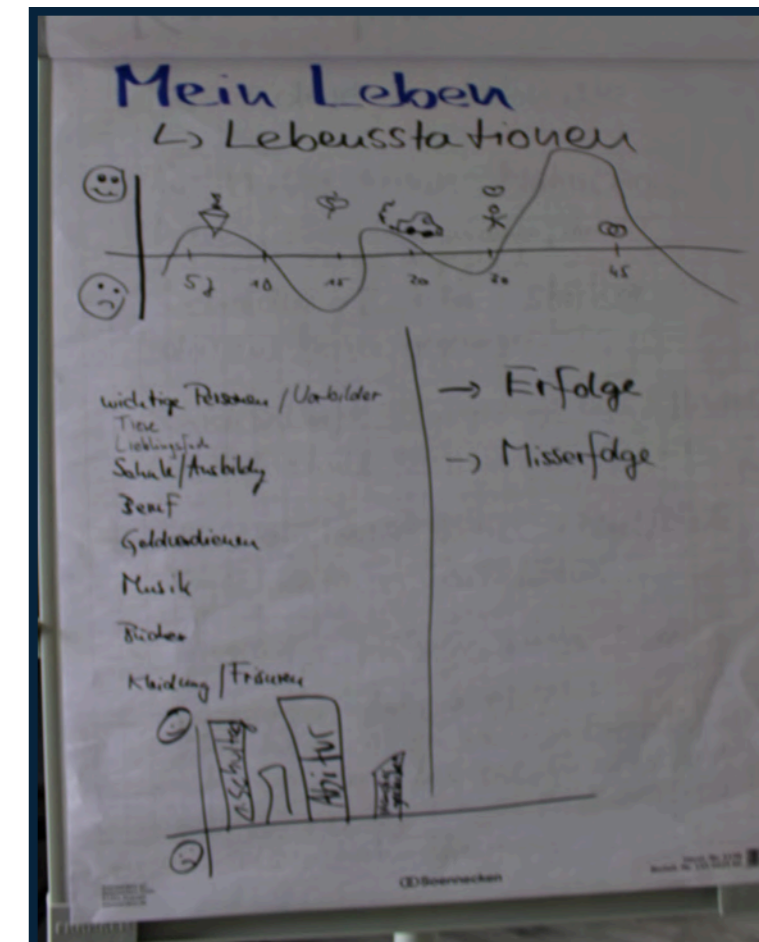 Mein Leben
↳ Lebensstationen
5 J 10 15 20 30 45
wichtige Personen / Vorbilder
Tiere
Schule/Ausbildg
Beruf
Geldverdienen
Musik
Bücher
Kleidung / Frisuren
→ Erfolge
→ Misserfolge
1. Schultag
Abitur
Soennecken